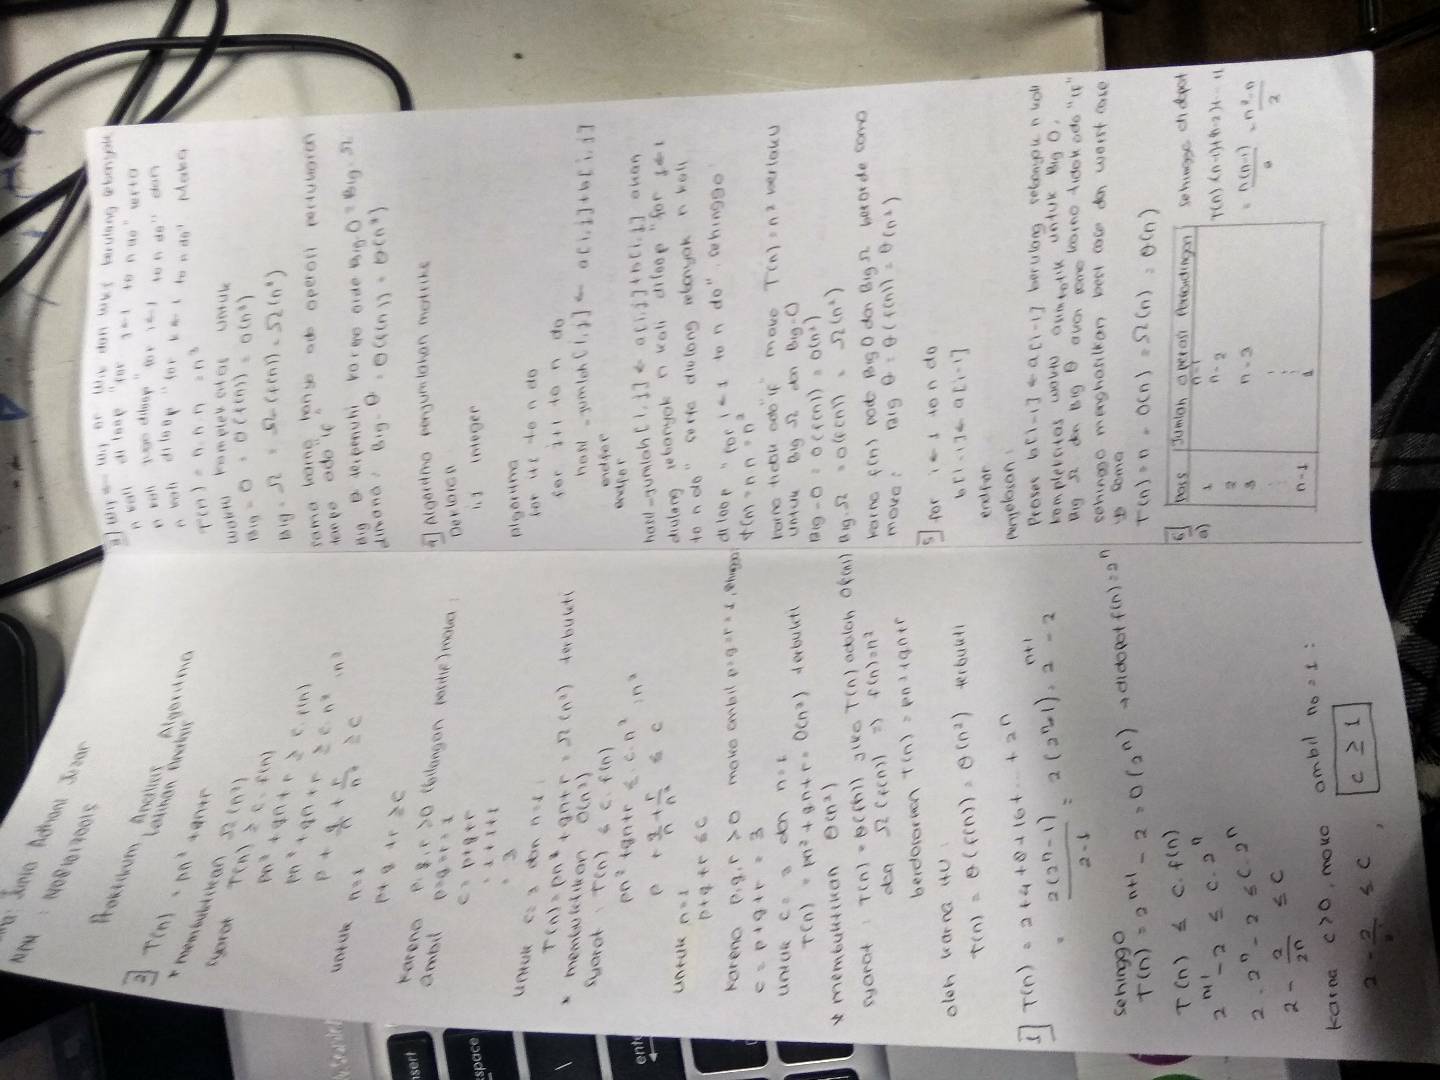 Praktikum Analisis Algoritma
Latihan Analisis
2] T(n) = pn² + qn + r
* membuktikan Ω(n²)
Syarat T(n) ≥ c. f(n)
pn² + qn + r ≥ c. f(n)
pn² + qn + r ≥ c. n² : n²
p + q/n + r/n² ≥ c
untuk n=1
p + q + r ≥ c
karena p, q, r > 0 (bilangan positif) maka :
ambil p=q=r=1
c = p+q+r
= 1+1+1
= 3
untuk c= 3 dan n=1 :
T(n) = pn² + qn + r = Ω(n²) terbukti
* membuktikan O(n²)
Syarat : T(n) ≤ c. f(n)
pn² + qn + r ≤ c. n² : n²
p + q/n + r/n² ≤ c
untuk n=1
p+q+r ≤ c
karena p,q,r > 0 maka ambil p=q=r=1, sehingga
c = p+q+r = 3
untuk c= 3 dan n=1
T(n) = pn² + qn + r = O(n²) terbukti
* membuktikan Θ(n²)
Syarat : T(n) = Θ(f(n)) jika T(n) adalah O f(n)
dan Ω(f(n)) => f(n)=n²
berdasarkan T(n) = pn² + qn + r
oleh karna itu :
T(n) = Θ(f(n)) = Θ(n²) terbukti
1] T(n) = 2+4+8+16+ ... + 2n
= 2(2ⁿ-1) / 2-1 = 2(2ⁿ-1) = 2ⁿ⁺¹ - 2
Sehingga
T(n) = 2ⁿ⁺¹ - 2 = O(2ⁿ) → didapat f(n)=2ⁿ
T(n) ≤ c. f(n)
2ⁿ⁺¹ - 2 ≤ c. 2ⁿ
2. 2ⁿ - 2 ≤ c. 2ⁿ
2 - 2/2ⁿ ≤ c
karna c>0, maka ambil n₀ = 1 :
2 - 2/2 ≤ c , c ≥ 1
berulang sebanyak
n kali di loop "for j←1 to n do" serta
n kali juga diloop "for i←1 to n do" dan
n kali diloop "for k←1 to n do" Maka
T(n) = n. n. n = n³
waktu kompleksitas untuk
Big-O = O(f(n)) = O(n³)
Big-Ω = Ω(f(n)) = Ω(n³)
sama karna hanya ada operasi pertukaran
tanpa ada "if".
Big θ terpenuhi karna orde Big O = Big Ω.
dimana : Big-θ = Θ(f(n)) = Θ(n³)
4] Algoritma penjumlahan matriks
Deklarasi
i,j integer
Algoritma
for i←1 to n do
for j←1 to n do
hasil-jumlah[i,j] ← a[i,j]+b[i,j]
endfor
endfor
hasil-jumlah[i,j] ← a[i,j]+b[i,j] akan
diulang sebanyak n kali diloop "for j←1
to n do" serta diulang sebanyak n kali
di loop "for i←1 to n do". Sehingga
T(n) = n. n = n²
karna tidak ada "if" maka T(n) = n² berlaku
untuk Big Ω dan Big-O
Big-O = O(f(n)) = O(n²)
Big Ω = Ω(f(n)) = Ω(n²)
karna f(n) pada Big O dan Big Ω berorde sama
maka : Big θ : θ(f(n)) = θ(n²)
5] for i←1 to n do
b[i-1] ← a[i-1]
endfor
Penjelasan :
Proses b[i-1] ← a[i-1] berulang sebanyak n kali
kompleksitas waktu asimtotik untuk Big O,
Big Ω dan Big θ akan sama karna tidak ada "if"
sehingga menghasilkan best case dan worst case
yg sama
T(n) = n = O(n) = Ω(n) = θ(n)
6]
a)
Pass Jumlah operasi Perbandingan
1 n-1
2 n-2
3 n-3
: :
n-1 1
sehingga didapat
T(n) = (n-1)+(n-2)+...+1
= n(n-1)/2 = n²-n/2
enter